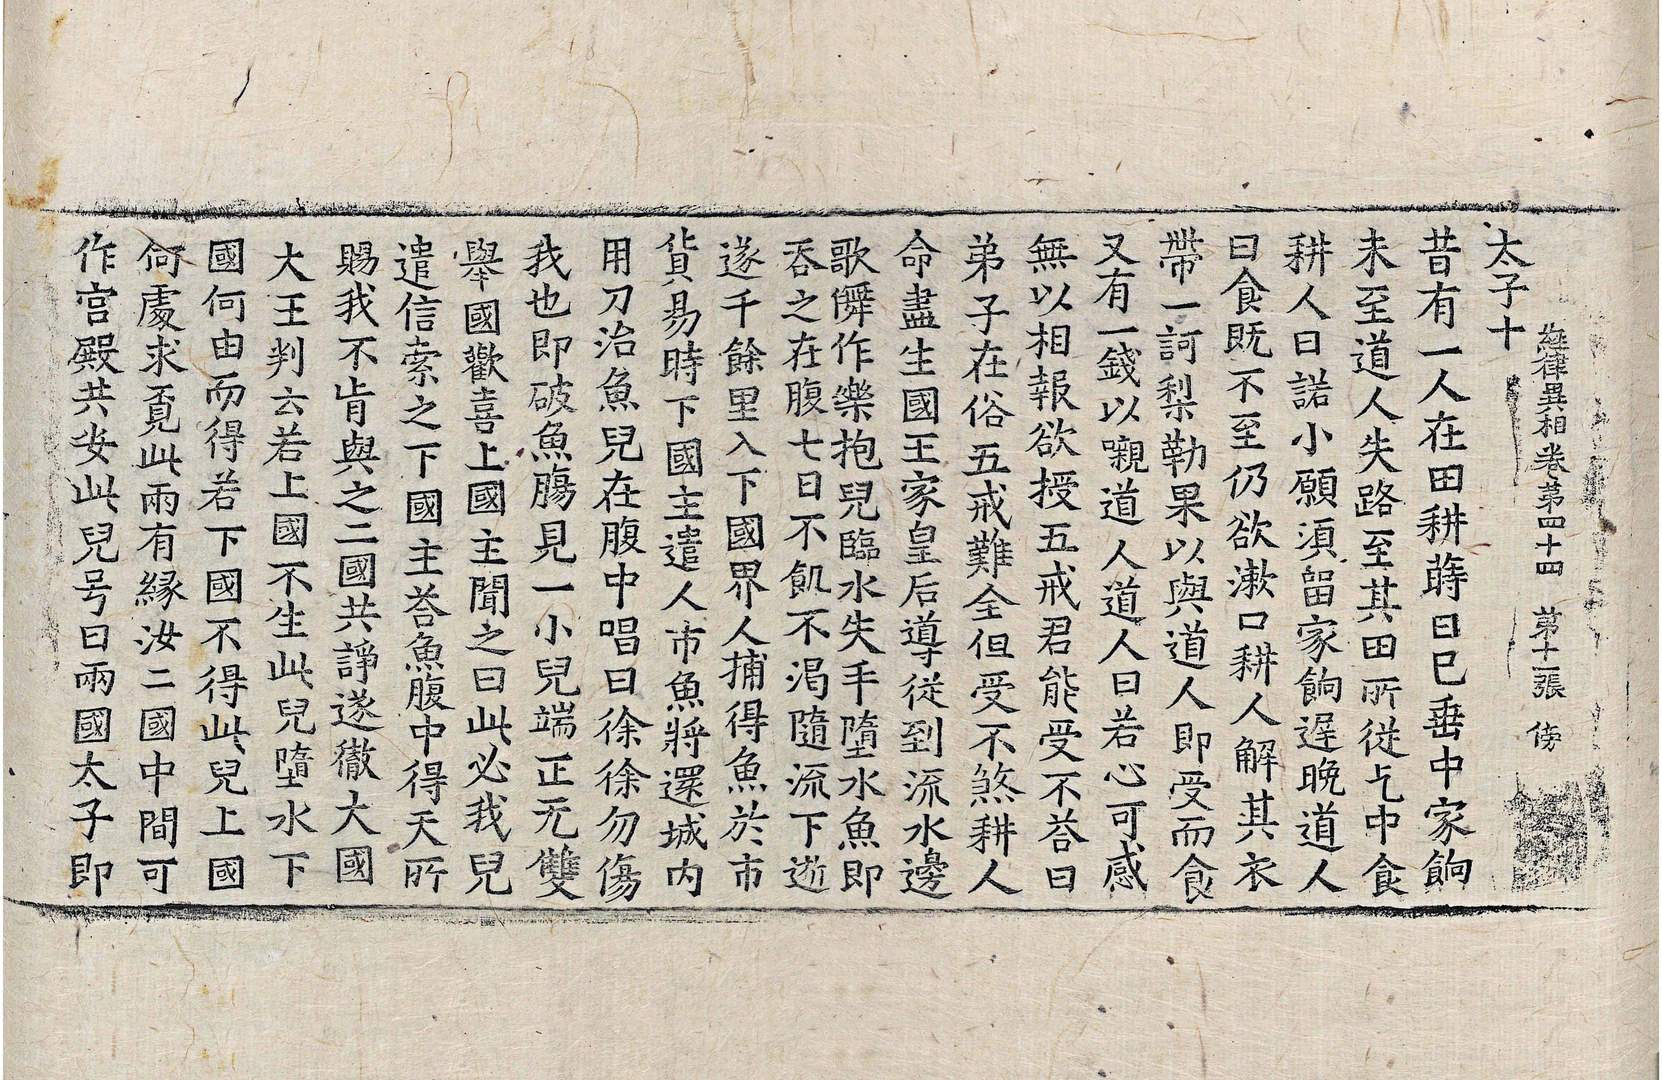 經律異相卷第四十四 第十二張 傍
太子十
昔有一人在田耕蒔日已垂中家餉
未至道人失路至其田所從乞中食
耕人曰諾小願湏留家餉遅晚道人
曰食既不至仍欲漱口耕人解其衣
帶一訶梨勒果以與道人即受而食
又有一錢以嚫道人道人曰若心可感
無以相報欲授五戒君能受不荅曰
弟子在俗五戒難全但受不煞耕人
命盡生國王家皇后導從到流水邊
歌儛作樂抱兒臨水失手墮水魚即
吞之在腹七日不飢不渴隨流下逝
遂千餘里入下國界人捕得魚於市
貨易時下國主遣人市魚將還城内
用刀治魚兒在腹中唱曰徐徐勿傷
我也即破魚膓見一小兒端正无雙
舉國歡喜上國主聞之曰此必我兒
遣信索之下國主荅魚腹中得天所
賜我不肯與之二國共諍遂徹大國
大王判云若上國不生此兒墮水下
國何由而得若下國不得此兒上國
何處求覔此兩有縁汝二國中間可
作宫殿共安此兒号曰兩國太子即